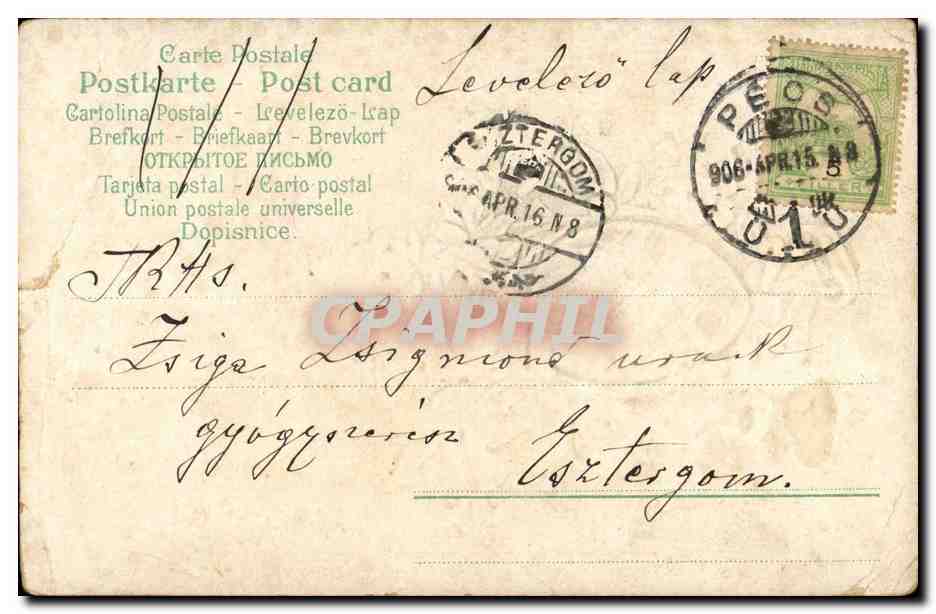 Carte Postale
Postkarte - Post card
Cartolina Postale - Levelezö-Lap
Brefkort - Briefkaart - Brevkort
ОТКРЫТОЕ ПИСЬМО
Tarjeta postal - Carto postal
Union postale universelle
Dopisnice.
Levelező lap
PÉCS
906-APR.15. N 8
1
ESZTERGOM
APR.16 N 8
CPAPHIL
Zsiga Zsigmond urnak
gyógyszerész
Esztergom.